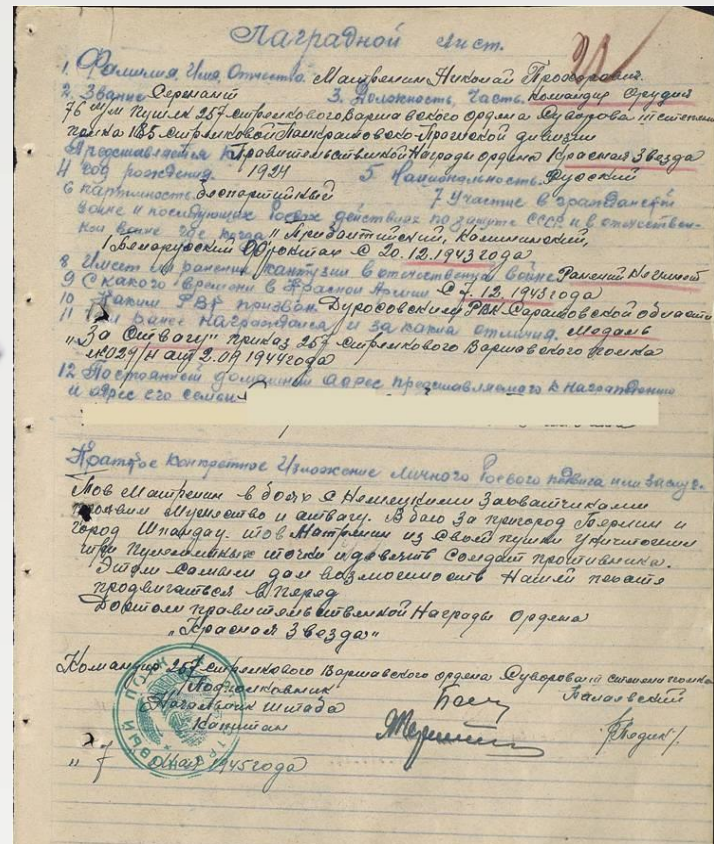 Наградной лист.
1. Фамилия, Имя, Отчество. Матренин Николай Прохорович.
2. Звание Сержант 3. Должность, Часть. Командир Орудия
76 м/м пушки 257 стрелкового Варшавского ордена Суворова III степени
полка 185 стрелковой Панкратовско-Пражской дивизии
Представляется к Правительственной Награды ордена Красная Звезда
4 год рождения. 1924 5. Национальность. Русский
6 партийность. беспартийный 7 Участие в гражданской
войне и последующих боевых действиях по защите СССР и в отечествен-
ной войне где когда "Прибалтийский, Калининский,
1 Белорусский Фронтах С 20.12.1943 года
8 Имеет ли ранения контузии в отечественной войне Ранений не имеет
9 С какого времени в Красной Армии С 7.12.1943 года
10 Каким РВК призван РВК Саратовской области
11 Чем ранее Награждался и за какие отличия. Медаль
"За Отвагу" приказ 257 стрелкового Варшавского полка
№029/н от 2.09 1944 года
12 Постоянный домашний адрес представляемого к награждению
и адрес его семьи
Краткое конкретное Изложение личного боевого подвига или заслуг.
Тов Матренин в боях с Немецкими Захватчиками
проявил Мужество и отвагу. В бою за пригород Берлин и
город Шпандау. тов Матренин из своей пушки уничтожил
три пулеметных точки и девять солдат противника.
Этим самым дал возможность Нашей пехоте
продвигаться в перед
Достоин правительственной Награды Ордена
"Красная Звезда"
Командир 257 стрелкового Варшавского ордена Суворова III степени полка
Подполковник
Начальник штаба
Капитан
"7 мая 1945 года